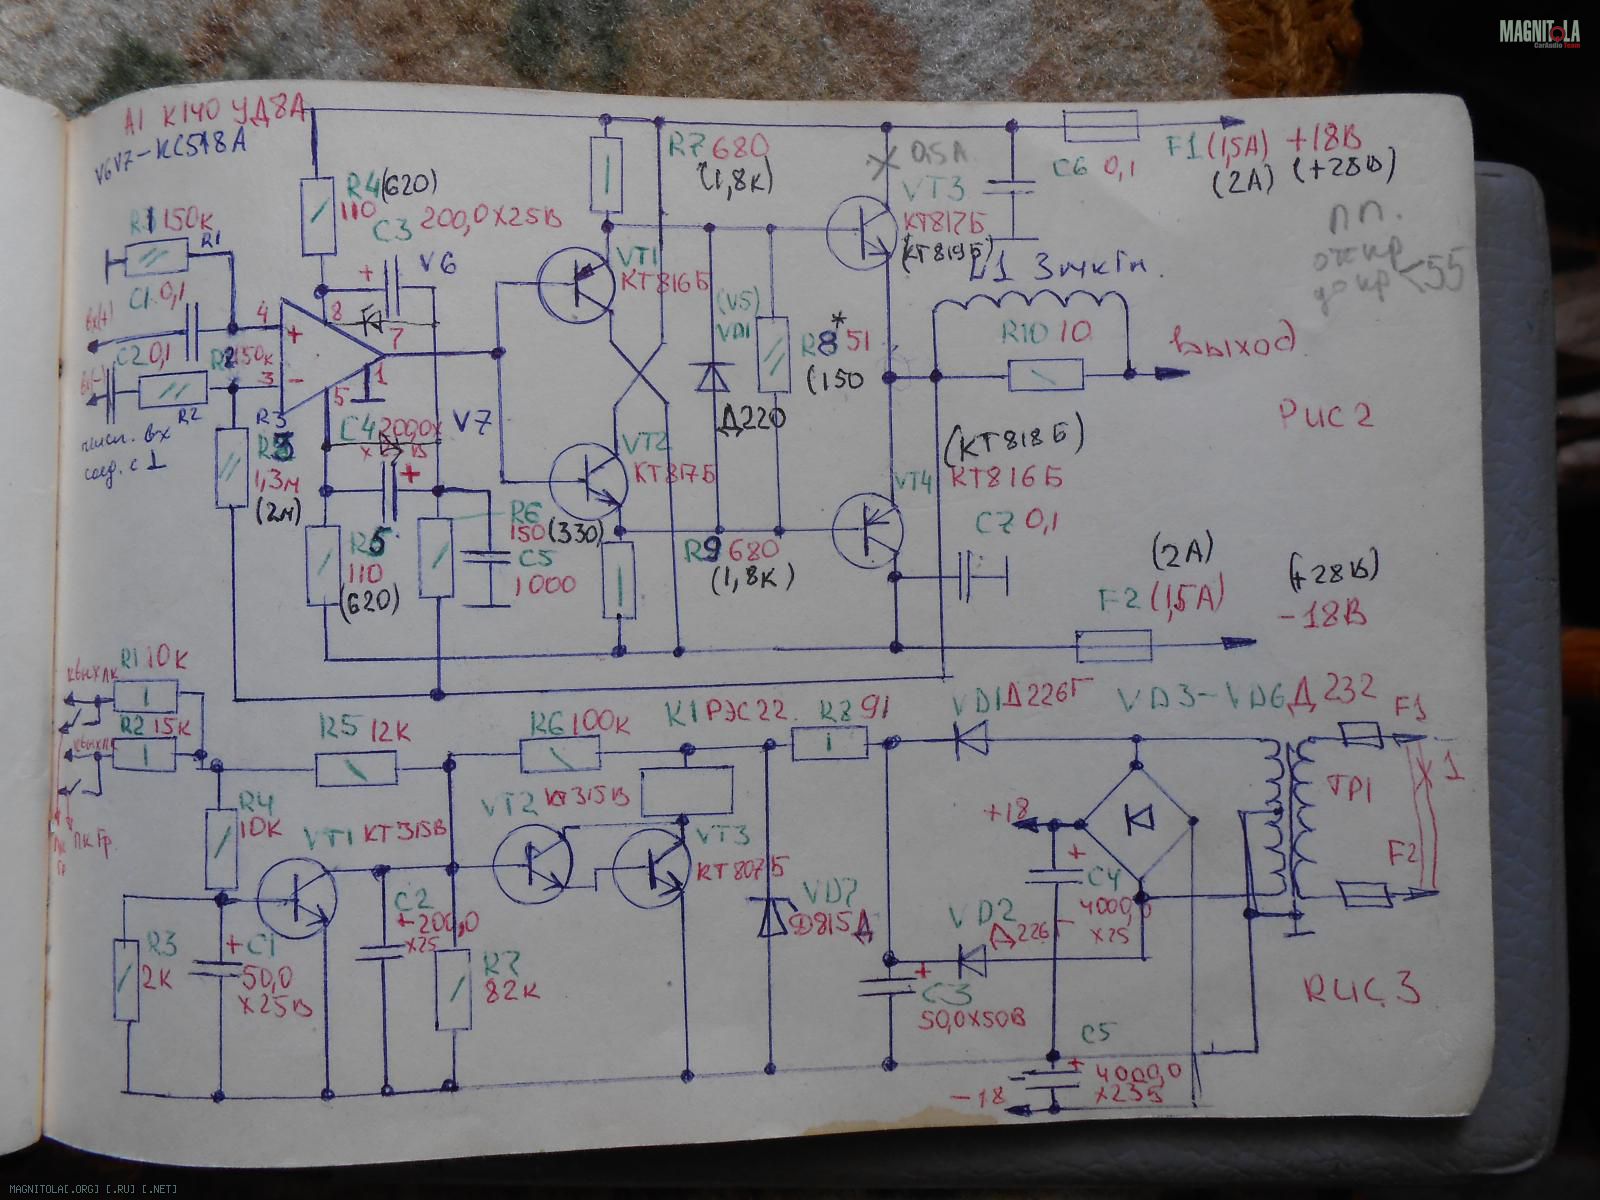 MAGNITOLA
CarAudio Team
A1 К140 УД8А
V6V7-КС518А
R1 150к
R1
C1 0,1
вх(+)
C2 0,1
R2 150к
вх(-)
R2
соед. с 1
4
3
8
7
5
1
+
-
R4 (620)
110
C3 200,0х25В
V6
V7
C4 200,0х
R3
1,3м
(2м)
R5
110
(620)
R6
150 (330)
C5
1000
VT1
КТ816Б
VT2
КТ817Б
R7 680
(1,8к)
(V5)
VD1
Д220
R8* 51
(150
R9 680
(1,8к)
0,5А
VT3
КТ817Б
(КТ819Б)
L1 3мкГн.
R10 10
Выход
C6 0,1
F1 (1,5А) +18В
(2А) (+28В)
ПП.
откр
до кр <55
Рис 2
(КТ818Б)
VT4 КТ816Б
C7 0,1
(2А)
F2 (1,5А)
(+28В)
-18В
R1 10к
R2 15к
R5 12к
R6 100к
К1 РЭС22
R8 91
VD1 Д226Г
VD3-VD6 Д232
F1
TP1
X1
F2
R4
10К
VT1 КТ315В
VT2 КТ315В
VT3
КТ807Б
C2
+200,0
х25
R3
2К
+ C1
50,0
х25В
R7
82К
VD7
Д815Д
VD2
Д226Г
+18
+
C4
4000,0
х25
+
C3
50,0х50В
C5
+
4000,0
х25В
-18
Рис. 3
MAGNITOLA[.ORG] [.RU] [.NET]